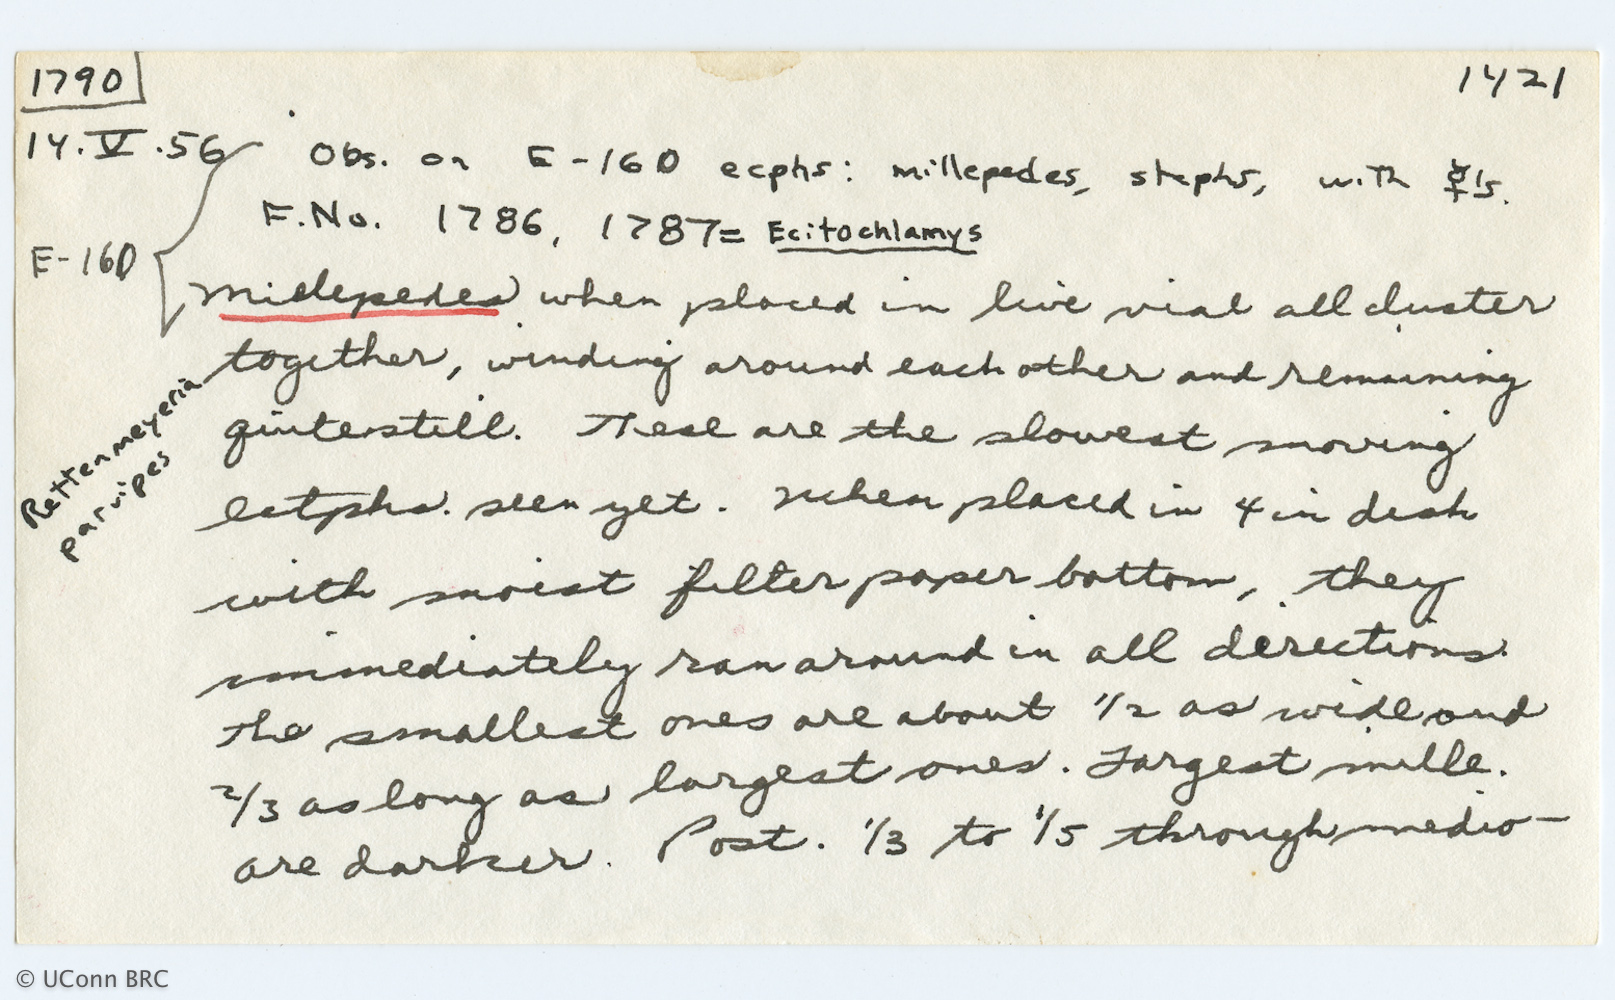 1790
1421
14.V.56
Obs. on E-16D ecphs: millepedes, stephs, with ☿'s.
F.No. 1786, 1787= Ecitochlamys
E-16D
Millepedes when placed in live vial all cluster
together, winding around each other and remaining
quite still. These are the slowest moving
ectphs. seen yet. When placed in 4 in dish
with moist filter paper bottom, they
immediately ran around in all directions.
The smallest ones are about 1/2 as wide and
2/3 as long as largest ones. Largest mille.
are darker. Post. 1/3 to 1/5 through medio-
Rettenmeyeria
parvipes
© UConn BRC